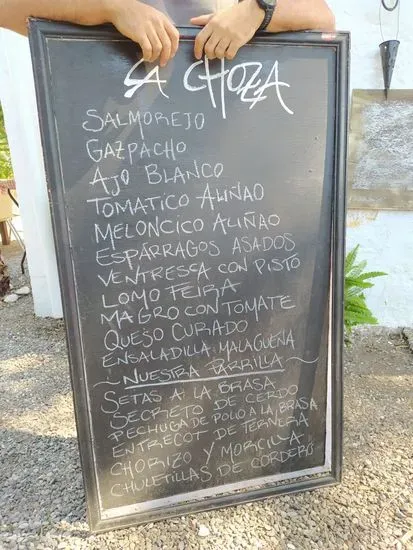 SA CHOZA
SALMOREJO
GAZPACHO
AJO BLANCO
TOMATICO ALIÑAO
MELONCICO ALIÑAO
ESPÁRRAGOS ASADOS
VENTRESCA CON PISTO
LOMO FEIRA
MAGRO CON TOMATE
QUESO CURADO
ENSALADILLA MALAGUEÑA
~NUESTRA PARRILLA~
SETAS A LA BRASA
SECRETO DE CERDO
PECHUGA DE POLLO A LA BRASA
ENTRECOT DE TERNERA
CHORIZO Y MORCILLA
CHULETILLAS DE CORDERO